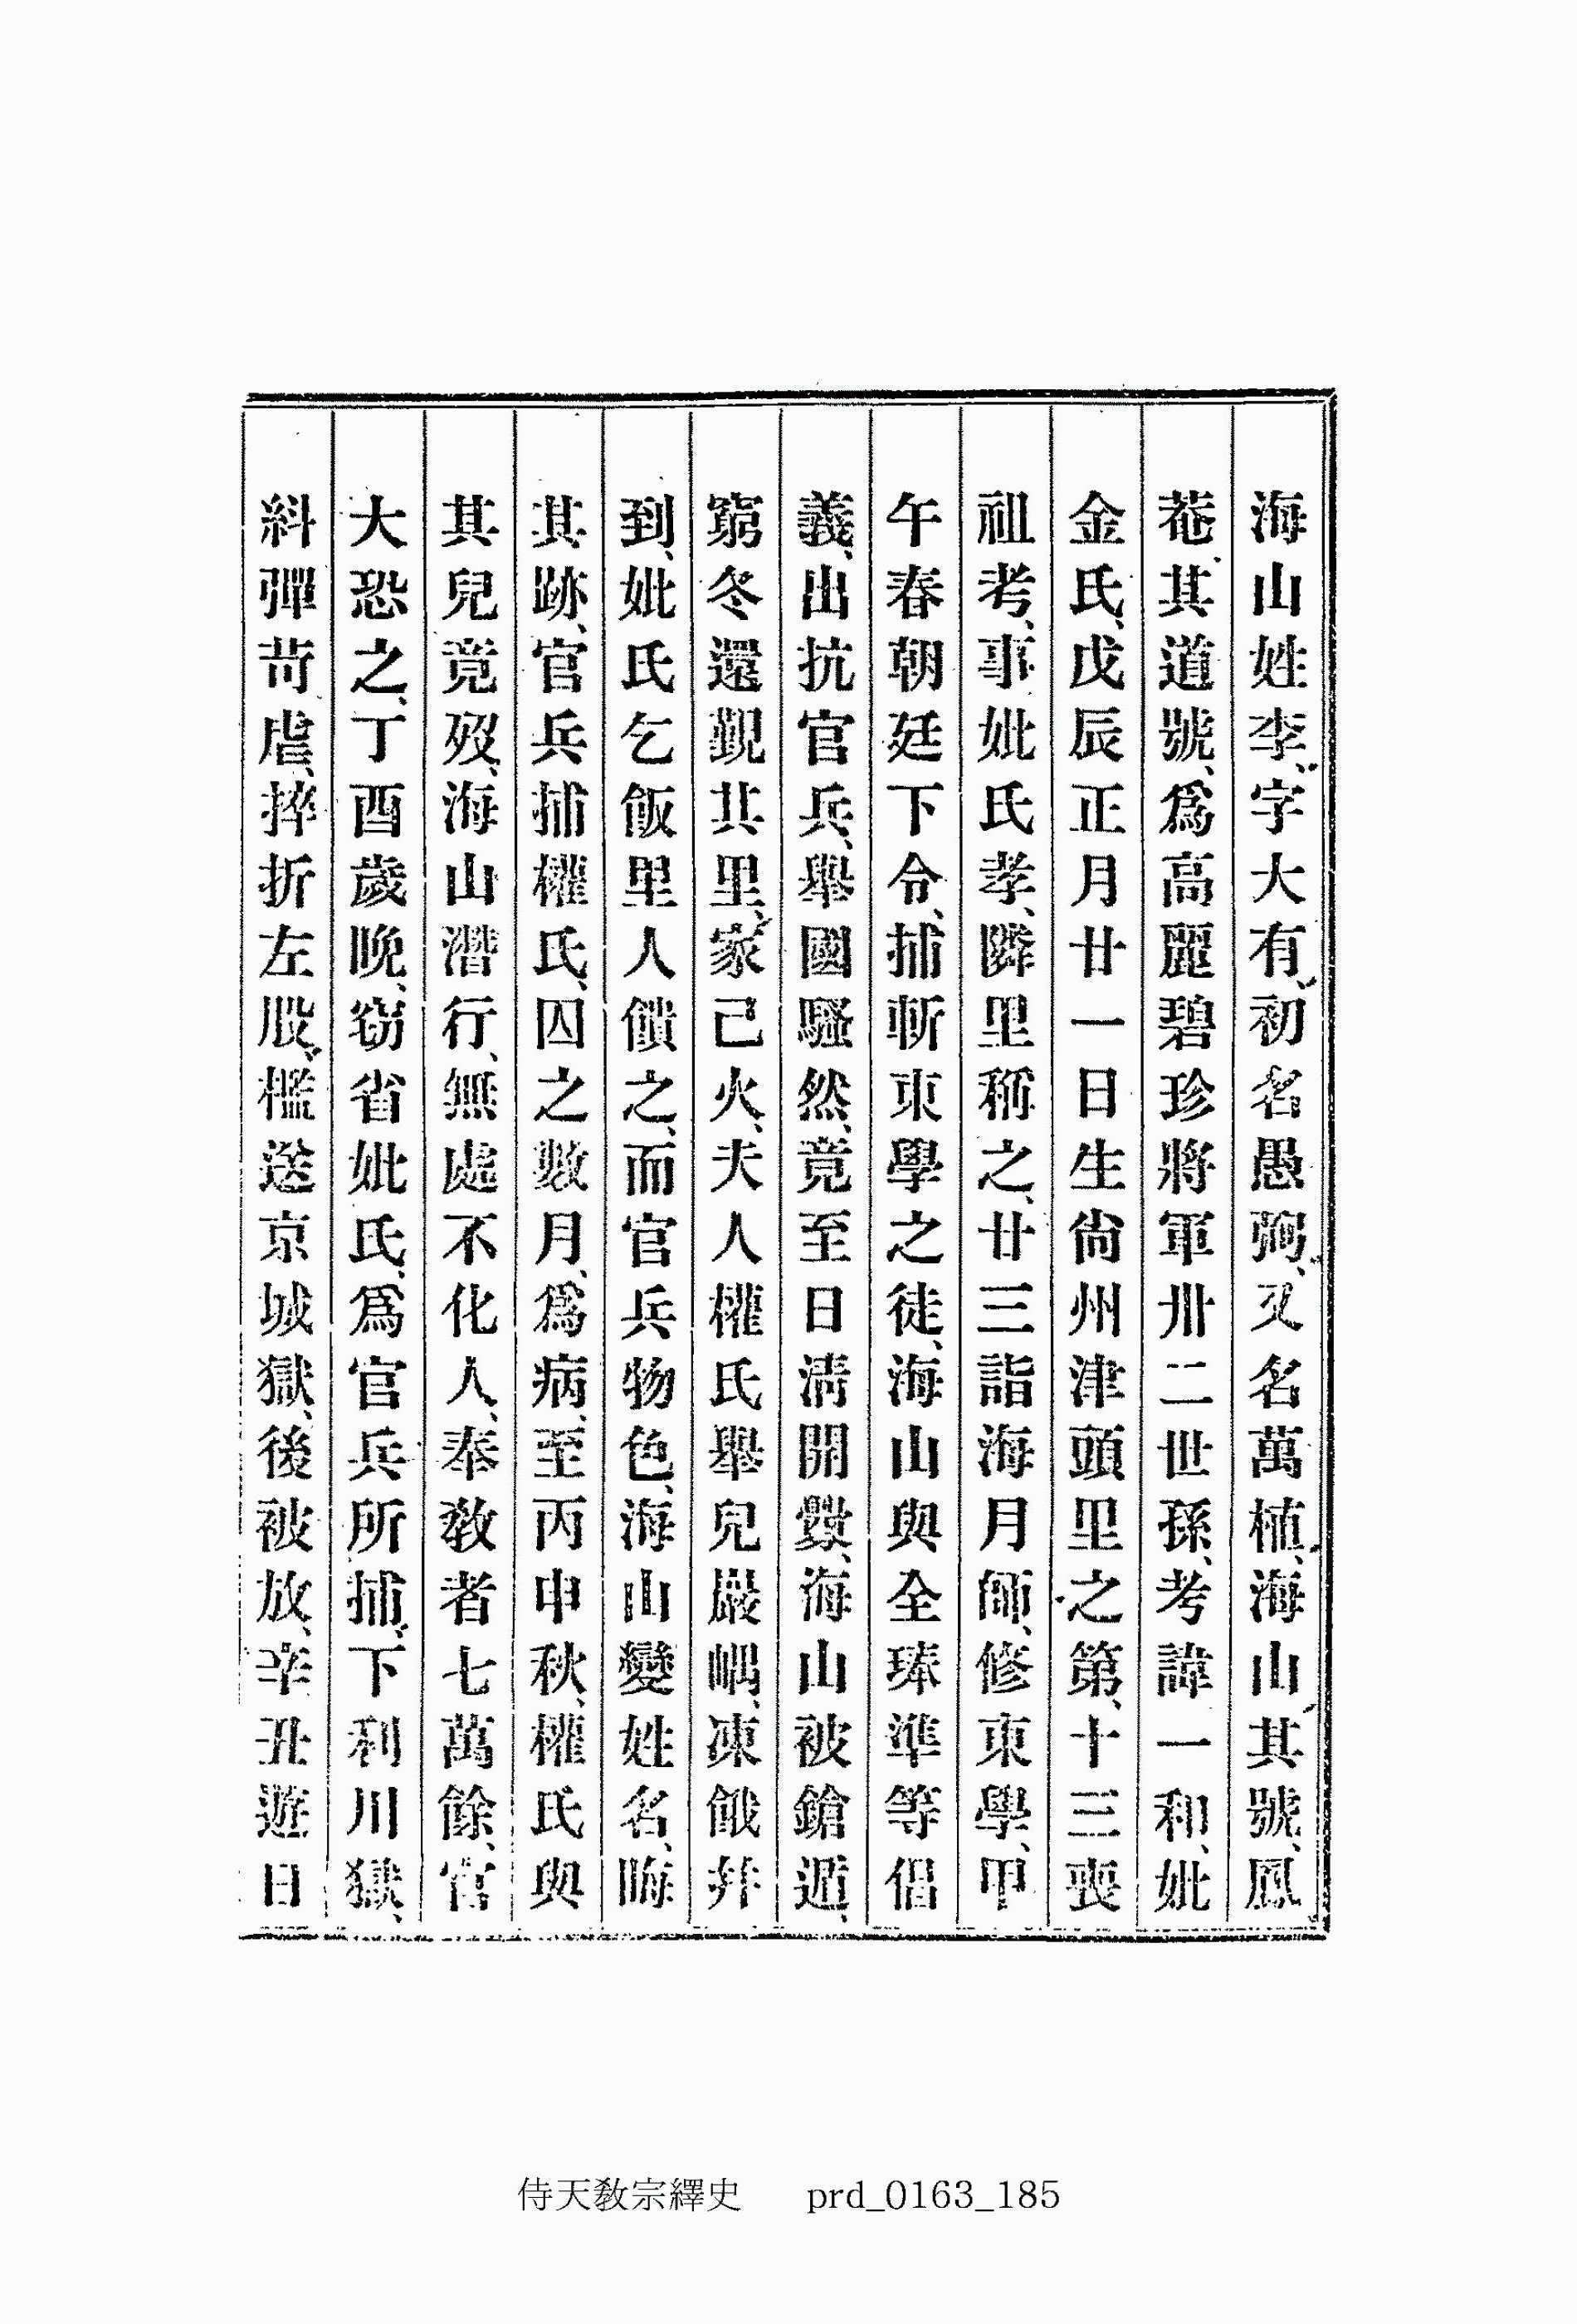 海山姓李、字大有、初名愚弼、又名萬植、海山其號、鳳
菴其道號、爲高麗碧珍將軍卅二世孫、考諱一和、妣
金氏、戊辰正月廿一日生尙州津頭里之第、十三喪
祖考、事妣氏孝、隣里稱之、廿三詣海月師、修東學、甲
午春朝廷下令、捕斬東學之徒、海山與全琫準等倡
義、出抗官兵、擧國騷然、竟至日淸開釁、海山被鎗遁、
窮冬還覲其里、家已火、夫人權氏擧兒巖嵎、凍餓幷
到、妣氏乞飯里人饋之、而官兵物色、海山變姓名、晦
其跡、官兵捕權氏、囚之數月、爲病、至丙申秋、權氏與
其兒竟歿、海山潛行、無處不化人、奉敎者七萬餘、官
大恐之、丁酉歲晩、窃省妣氏、爲官兵所捕、下利川獄、
糾彈苛虐、捽折左股、檻送京城獄、後被放、辛丑遊日
侍天敎宗繹史 prd_0163_185